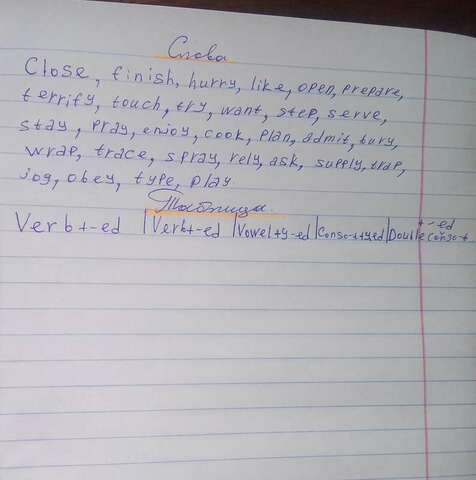 Слова
Close, finish, hurry, like, open, prepare,
terrify, touch, try, want, step, serve,
stay, pray, enjoy, cook, plan, admit, tury,
wrap, trace, spray, rely, ask, supply, trap,
jog, obey, type, play
Таблица.
Verb+-ed | Verb+-ed | Vowel+y-ed | Conso-t+yed | Double conso-t +-ed